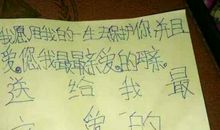 我愿用我的一生去保护你并且
爱您我最最亲爱的母亲。
送给我最
爱的